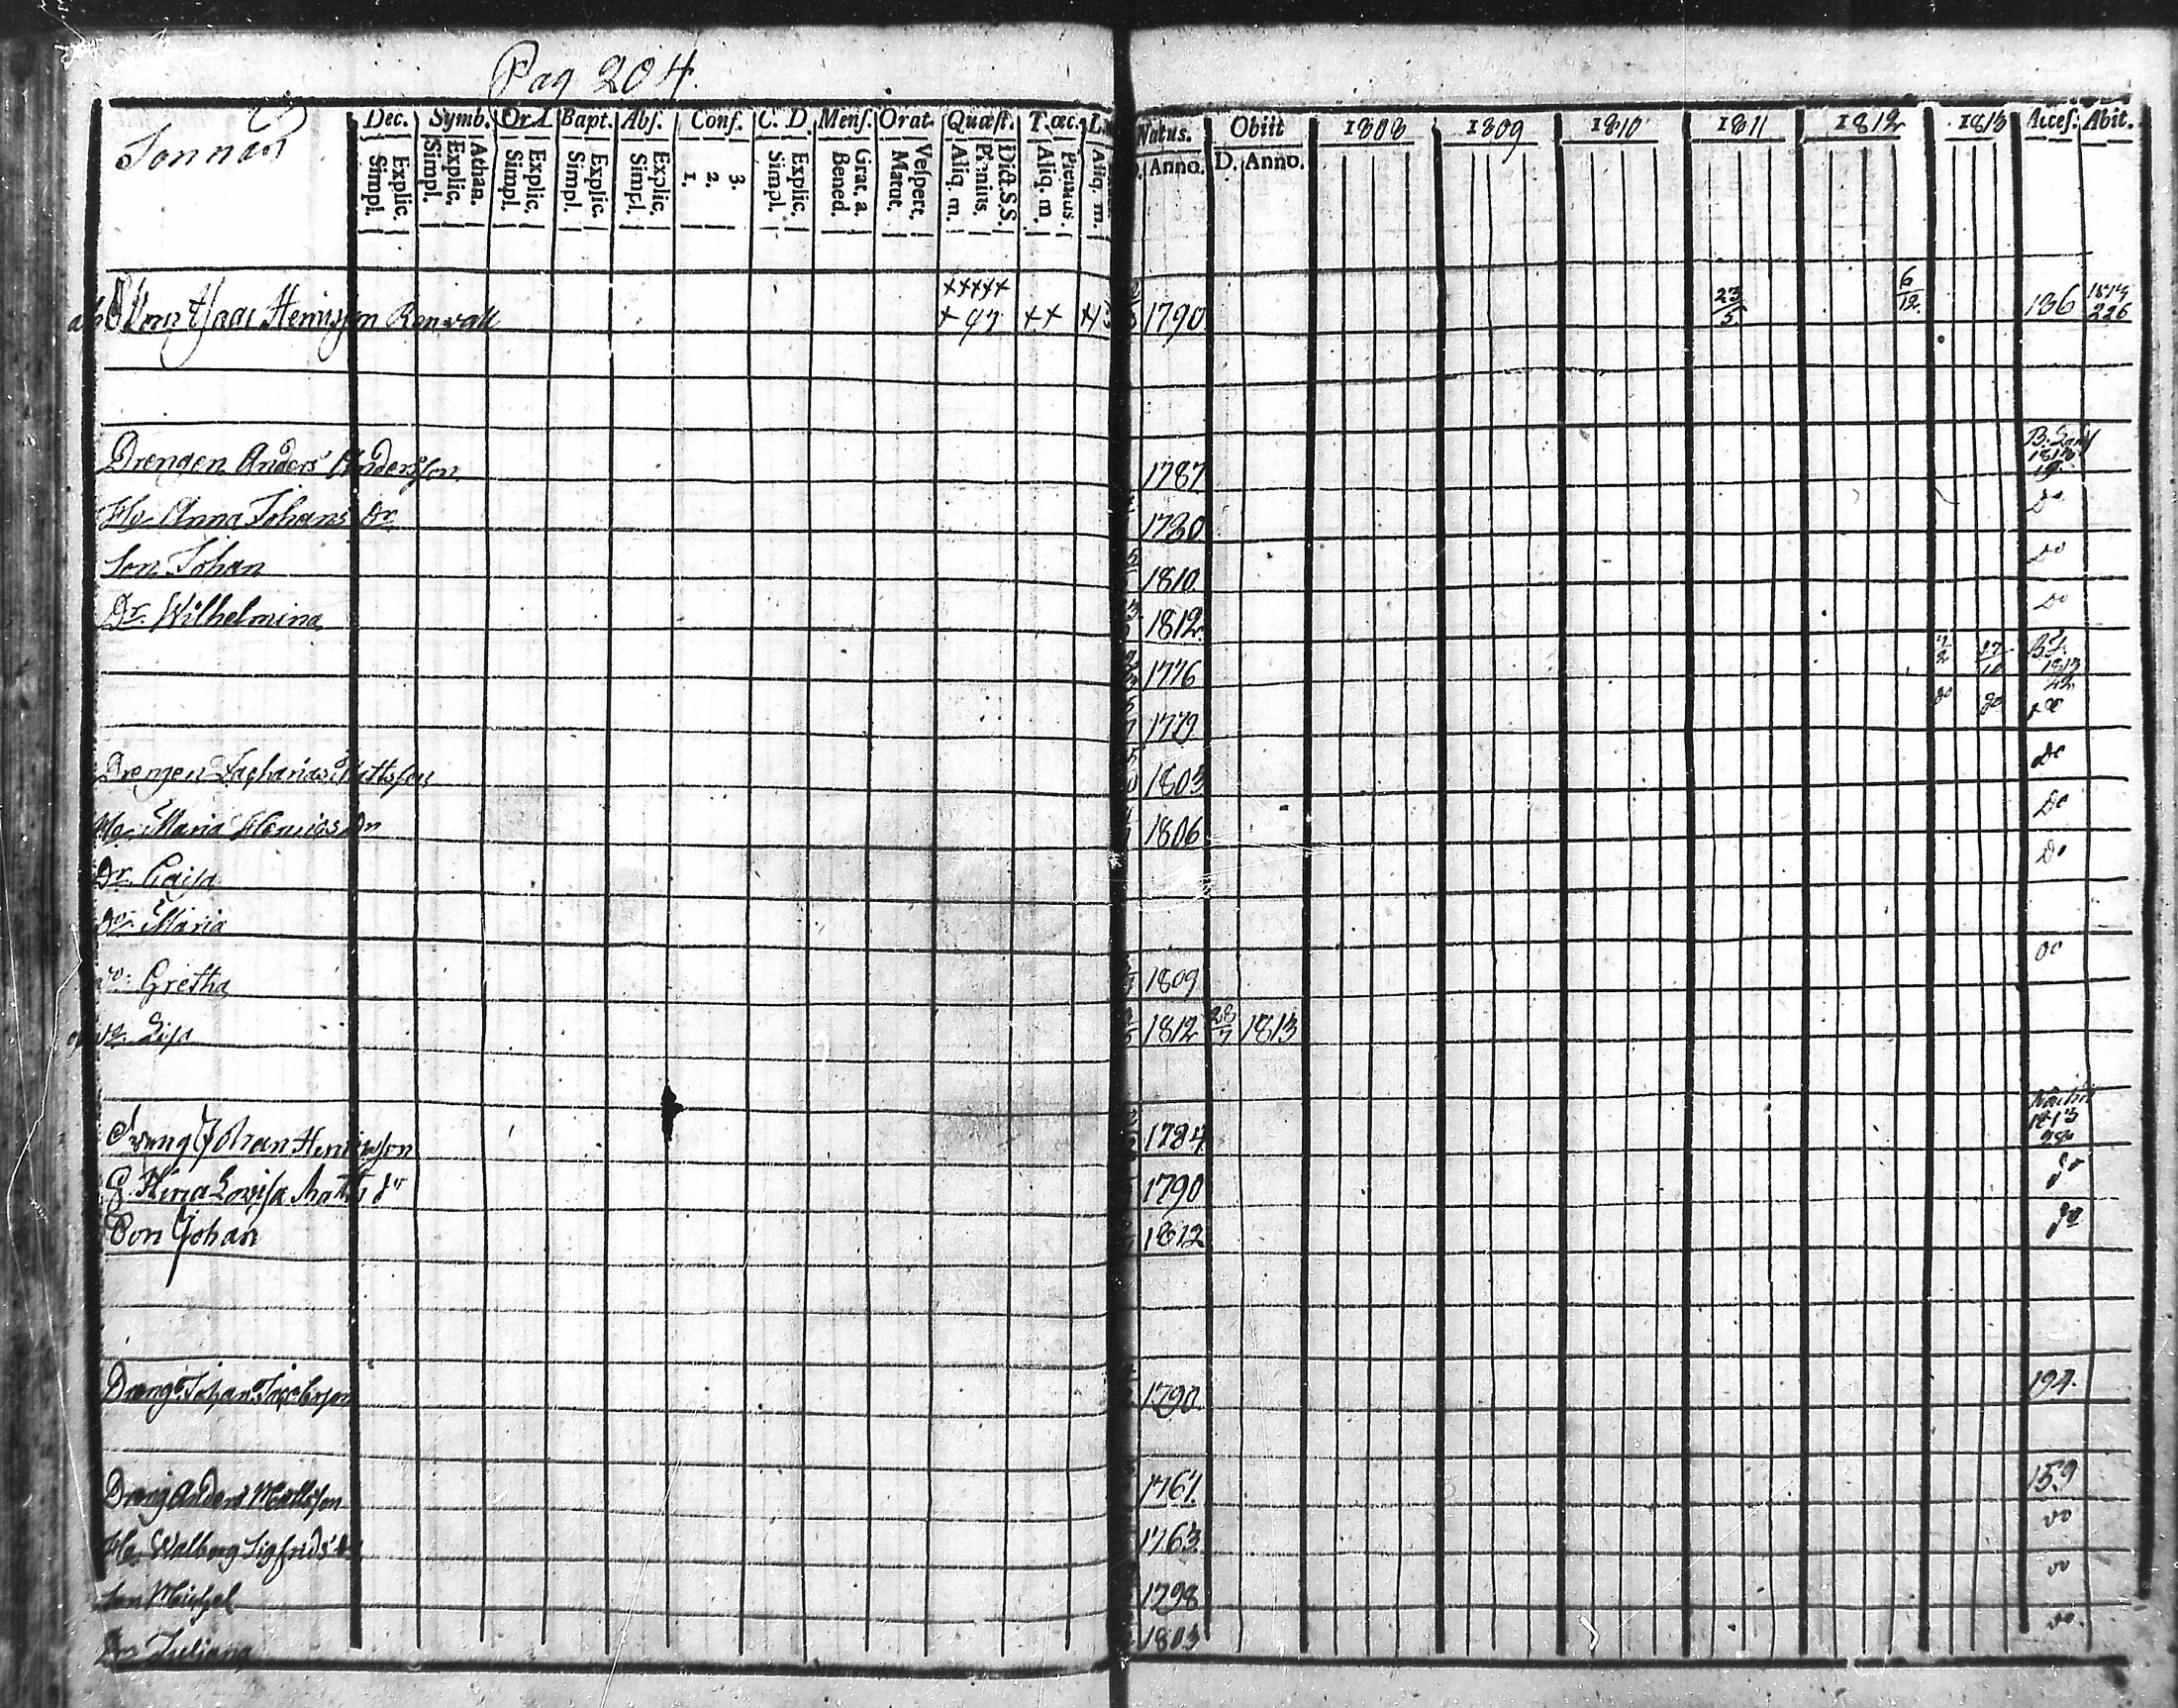 Pag 204.
Sonnäs
Dec. Symb. Or. D. Bapt. Abs. Conf. C. D. Mens. Orat. Quæst. T. œc. Natus. Obiit 1808 1809 1810 1811 1812 1813 Acces. Abit.
Explic. Simpl. Athan. Explic. Simpl. Explic. Simpl. Explic. Simpl. Explic. Simpl. 3. 2. 1. Explic. Simpl. Grat. a. Bened. Vespert. Matut. Dict. S.S. Plenius. Aliq. m. Plenius. Aliq. m. Aliq. m. Anno. D. Anno.
Isaac Henricsson Renvall +++++ + ++ 1790 23/5 6/12 136 1813 226
Drengen Anders Andersson 1787 1813
Hu Anna Johans Dr 1780 Do
Son Johan 1810 Do
Dr. Wilhelmina 1812 Do
1776 7/2 27/10 1813
1779 do do do
Drengen Zacharias Mattsson 1803 Do
Maria Henrics Dr 1806 Do
Dr. Cajsa Do
Do Maria
Do Gretha 1809 Do
Do Lisa 1812 28/7 1813
Dreng Johan Henricsson 1784 1813
Lovisa Matts dr 1790 do
Son Johan 1812 do
Dreng Johan Jacobsson 1790 194.
Dreng Anders Mattsson 1767 159
Hu Walborg Sigfrids Dr 1763 Do
Son Michel 1798 Do
Dr Juliana 1803 Do